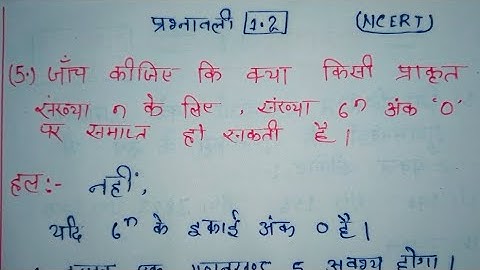 प्रश्नावली 1.2 (NCERT)
(5.) जाँच कीजिए कि क्या किसी प्राकृत
संख्या n के लिए, संख्या 6ⁿ अंक '0'
पर समाप्त हो सकती है।
हल:- नहीं,
यदि 6ⁿ के इकाई अंक 0 है।
एक 5 अवश्य होगा।